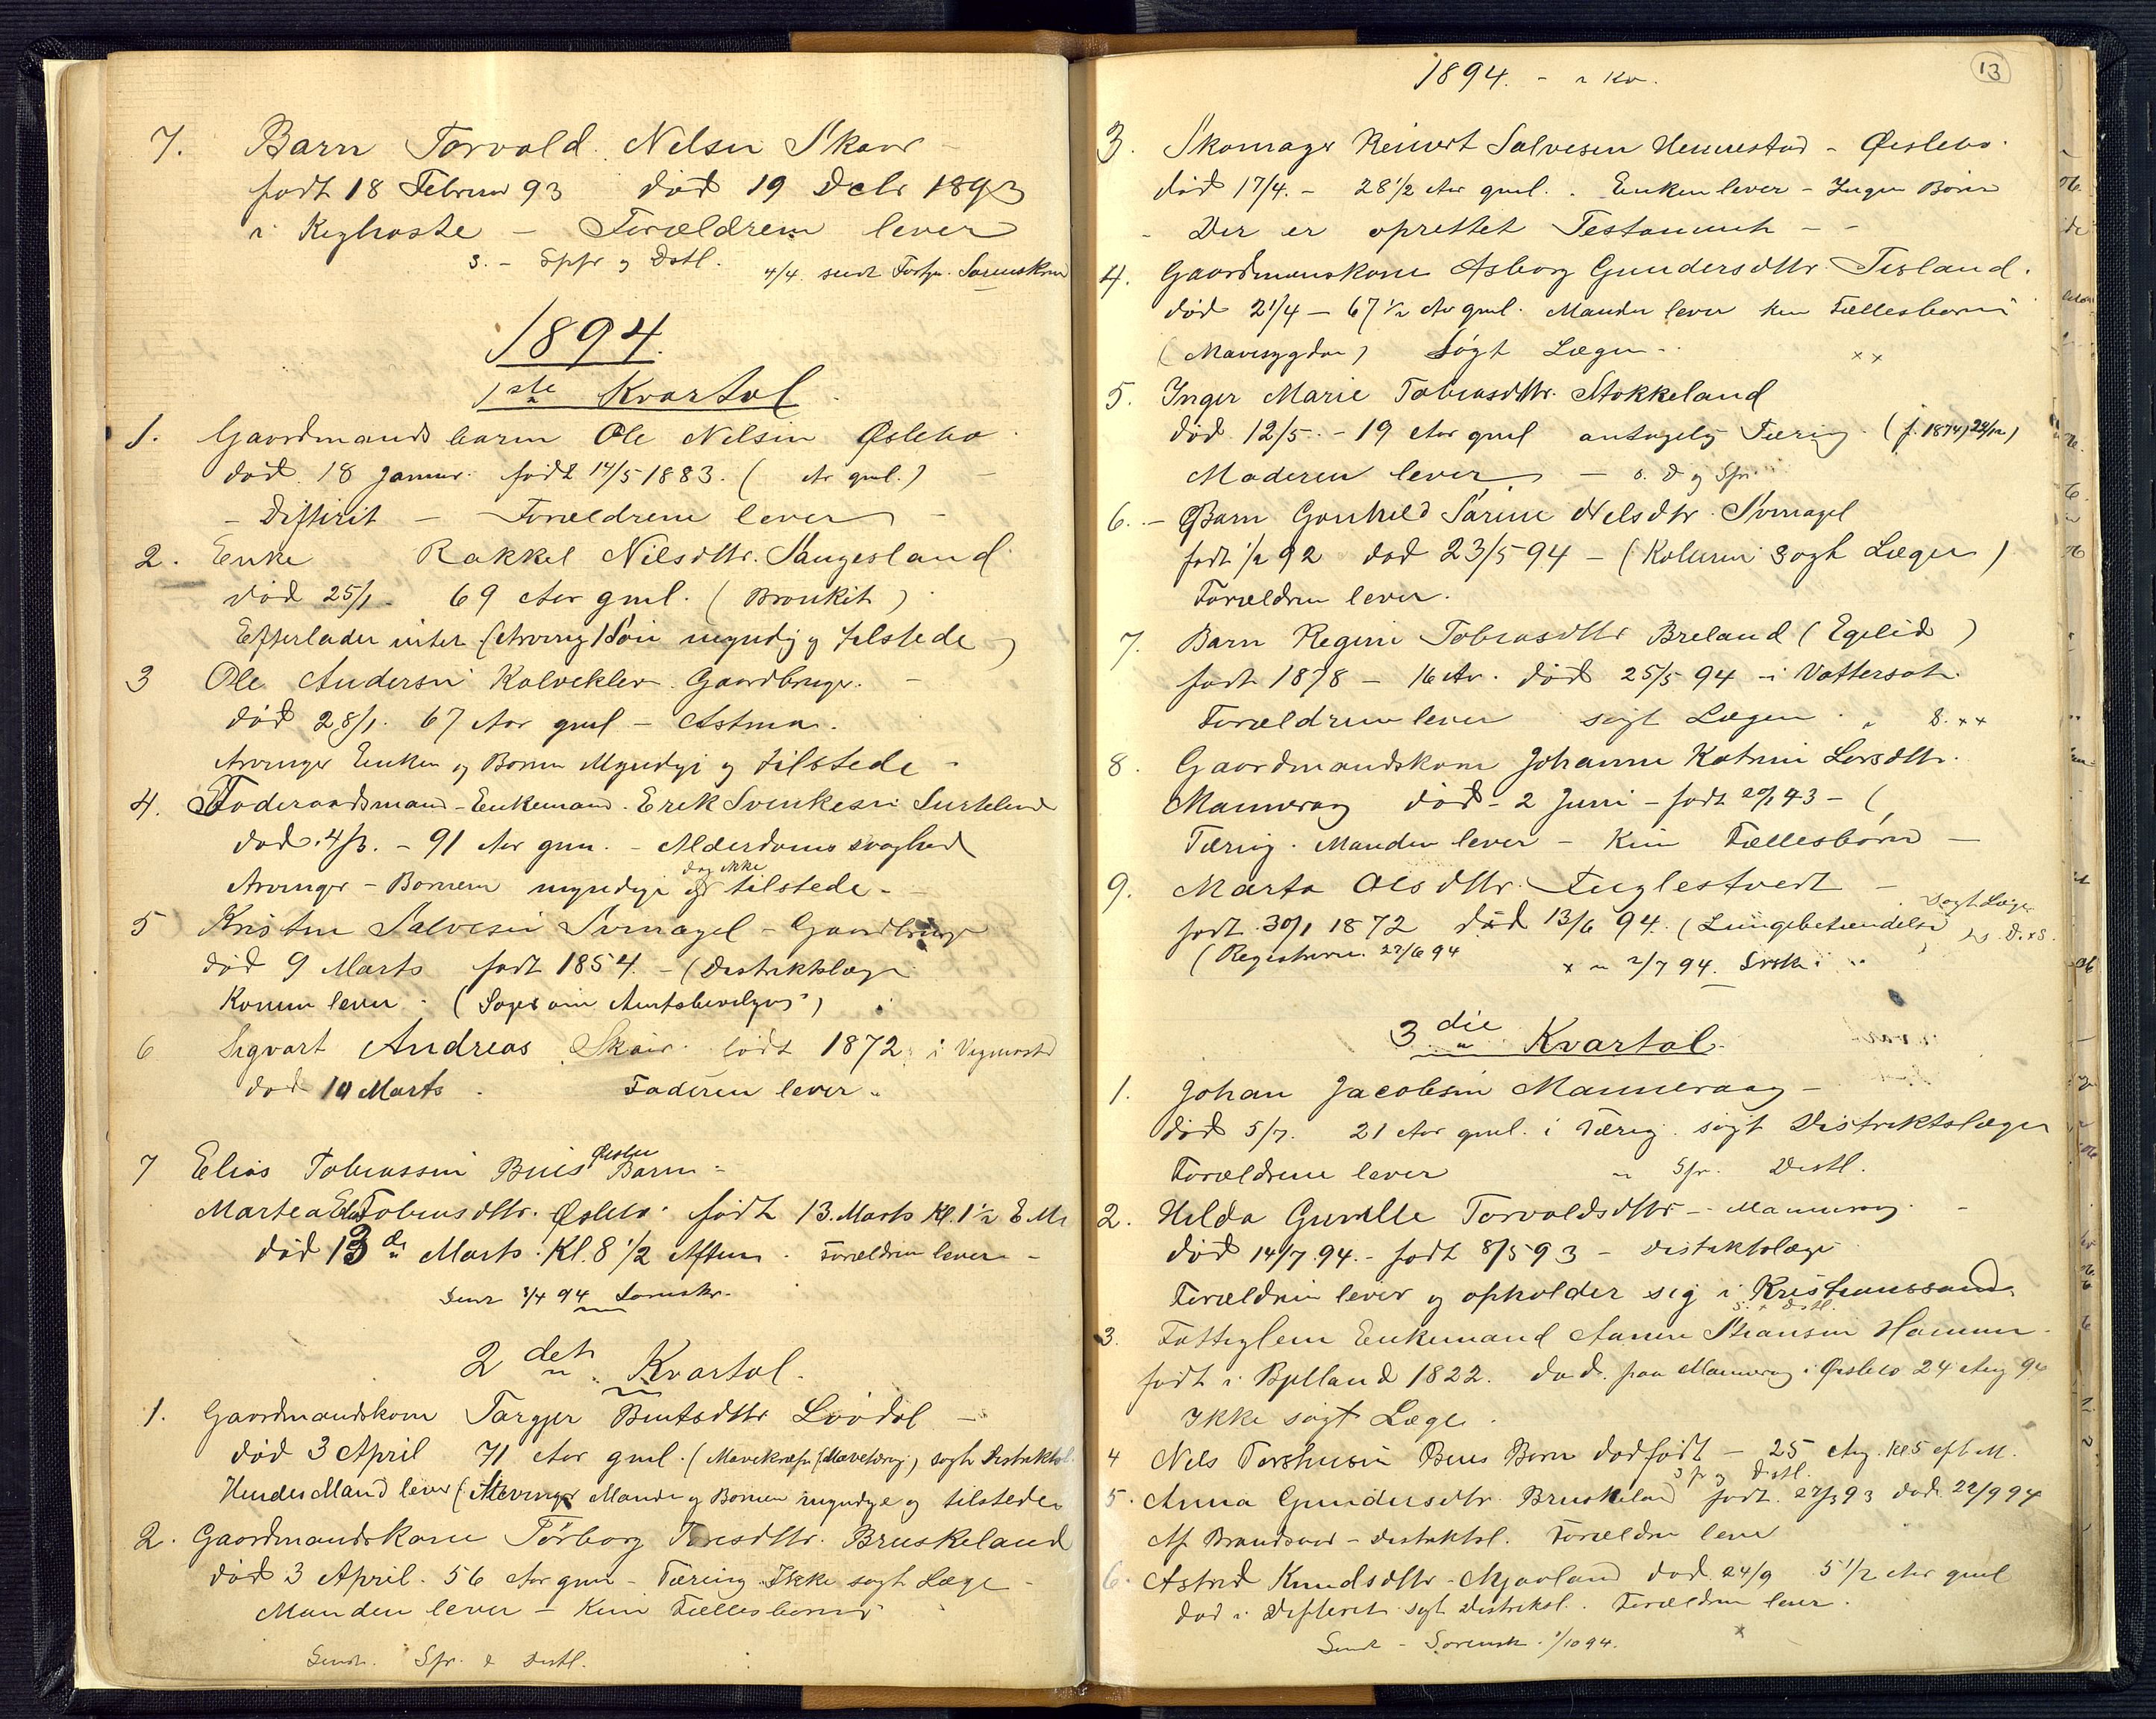 7. Barn Torvald Nelsen Skaar -
født 18 Februar 93 død 19 Decbr 1893
i Kighoste - Forældrene lever
s. - Spr og Dstl. 4/4 sendt Fortgn. Sorenskrn
1894.
1ste Kvartal
1. Gaardmands barn Ole Nilsen Øslebo
død 18 Januar født 14/5 1883. ( Ar gml.) -
- Difterit - Forældrene lever -
2. Enke Rakkel Nilsdttr. Saugesland
død 25/1. 69 Aar gml. (Bronkit)
Efterlader intet (Arving 1 Søn myndig og tilstede)
3 Ole Andersen Kalveklev Gaardbruger. -
død 28/1. 67 Aar gml - Astma.
Arvinger Enken og Børnen Myndige og tilstede -
4. Foderaadsmand - Enkemand. Erik Svenkesen
død 4/3. - 91 Aar gml. - Alderdoms svaghed
dog ikke
Arvinger - Børnene myndige og tilstede -
5 Kristen Salvesen - Gaardbruger
død 9 Marts født 1854. - (Distriktslæge
Konen lever - (Søges om Amtsbevilgn)
6 Sigvart Andreas Skaar født 1872 i Vigmostad
død 10 Marts. Faderen lever -
7 Elias Tobiassen Buis Øslebo Barn -
Martea Elise Tobiasdttr. Øslebo født 13. Marts Kl. 1 1/2 E.M.
død 13de Marts. Kl. 8 1/2 Aften. Forældren lever -
Sendt 3/4 94 Sorenskr.
2det Kvartal.
1. Gaardmandskone Targjer Bentsdttr Lovdal -
død 3 April 71 Aar gml. (Mavekræft (Mavetæring) søgt Distriktsl.
Hendes Mand lever (Arvinger Manden og Børnen myndige og tilstede
2. Gaardmandskone Torborg Bruskeland
død 3 April. 56 Aar gml - Tæring. Ikke søgt Læge -
Manden lever - Kun Fællesbørn
Sendt. Spr. & Dstl.
1894. - 2 Kv. 13
3. Skomager Reinert Salvesen Hennestad - Øislebo.
død 17/4. - 28 1/2 Aar gml. Enken lever - Ingen Børn
- Der er oprettet Testament - -
4. Gaardmanskone Asborg Gundersdttr. Tisland.
død 21/4 - 67 1/2 Ar gml. Manden lever kun Fællesbørn
(Mavesygdom) Søgt Lægen - x x
5. Inger Marie Tobiasdttr. Stokkeland
død 12/5 - 19 Aar gml antagelig Tæring. (f. 1874) 24/12)
Moderen lever - s. D og Spr.
6. - Barn Gonhild Sarine Nelsdtr.
født 1/2 92 død 23/5 94 - (Kolerin søgt Lægen)
Forældren lever.
7. Barn Regine Tobiasdttr Breland (Egelid)
født 1878 - 16 Ar. død 25/5 94 - i Vattersot.
Forældren lever søgt Lægen. S. x x
8. Gaardmandskone Johanne Katrine Larsdttr.
Manneraag død - 2 Juni - født 20/1 43 - (
Tæring. Manden lever - Kun Fællesbørn -
9. Marta Olsdttr. Fuglestvedt - Søgt Læge
født 30/1 1872 død 13/6 94. (Lungebetændelse s. D. x S.
(Registreret 27/6 94 x 2/7 94. Srsk.
3die Kvartal.
1. Johan Jacobsen Manneraag -
død 5/7. 21 Aar gml. i Tæring. søgt Distriktslægen
Forældrene lever Spr. Distl.
2. Hilda Gunille Torvaldsdttr - Manneraag. -
død 14/7 94. - født 8/5 93 - Distriktslæge
Forældren lever og opholder sig i Kristianssand.
S. x Dstl.
3. Fattiglem Enkemand Aanen Stiansen
født i Bjelland 1822. død. paa Manneraag i Øislebo 24 Aug 94
Ikke søgt Læge.
4 Nils Torshusen Buis Barn dødfødt - 25 Aug. Kl 5 eft M.
Spr og Distl.
5. Anna Gundersdtr. Bruskeland født. 27/3 93 død. 22/9 94
Af Brandsaar - Distriktsl. Forældren lever
6. Astrid Knudsdttr - død. 24/9 5 1/2 Aar gml
død i Difterit søgt Distriktsl. Forældren lever.
Sendt - Sorensk. 1/10 94. x